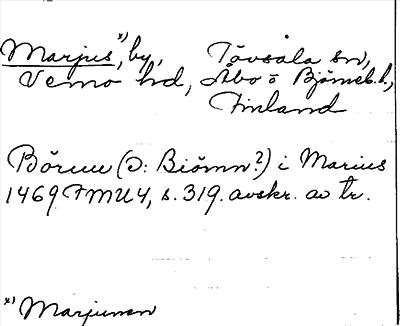 Marjus x), by, Tövsala sn,
Vemo hd, Åbo o Björneb. l.,
Finland
Börnu (ɔ: Biörnn?) i Marius
1469 FMU 4, s. 319. avskr. av tr.
x) Marjunen